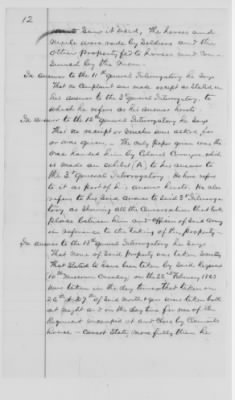 12
saw & said, The horses and
mules were rode by Soldiers and the
other property fed to horses and con-
sumed by the men.
In Answer to the 11th General Interrogatory he Says
That no Complaint was made except as Stated in
his answer to the 3d General Interrogatory, to
which he refers as his answer hereto.
In Answer to the 12th General Interrogatory he Says
That no receipt or voucher was asked for
or was given. The only paper given was the
one handed him by Colonel
is made an exhibit (A) to his answer to
the 3d General Interrogatory. He here refers
to it as part of his answer hereto. He also
refers to his said answer to said 3d Interroga-
tory, as showing all the Conversation that took
place between him and officers of said Army
in reference to the taking of the property.
In Answer to the 13th General Interrogatory he Says
That none of Said property was taken Secretly
That Stated to have been taken by Said
10th Missouri Cavalry on the 22nd February 1863
were taken in the day time. That taken on
26th & 27th of Said month was taken both
at night and in the day time for one of the
Regiments encamped at and close by
house — cannot State more fully than he